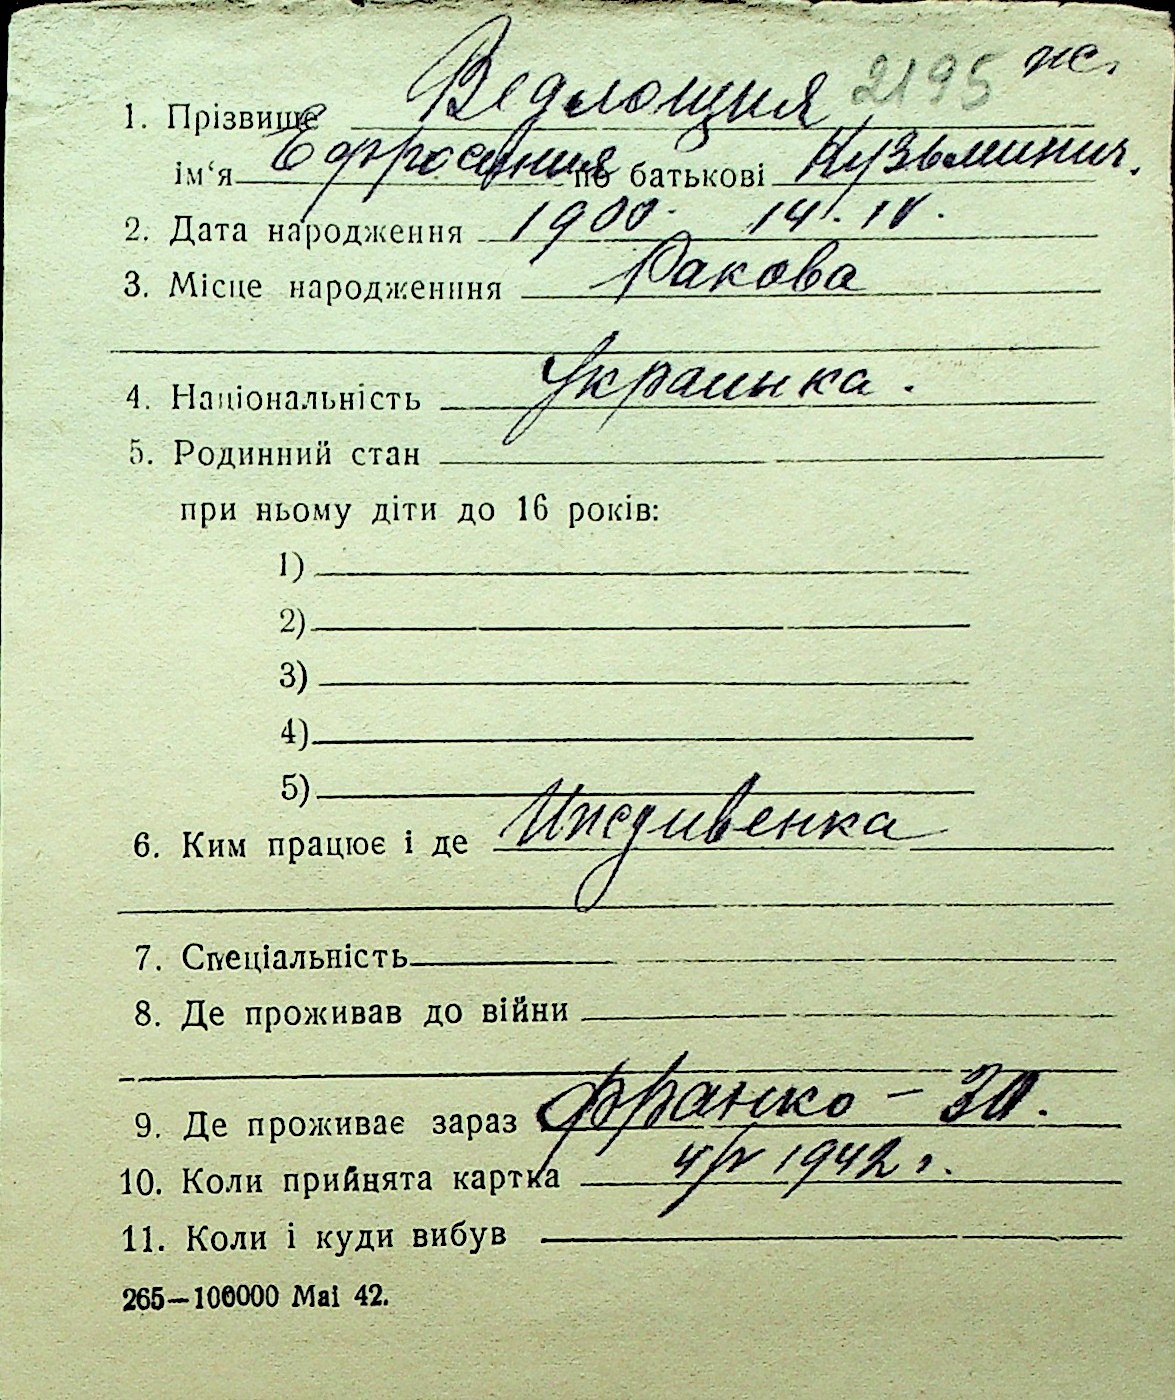 2195 ж.
1. Прізвище Ведлощия
ім'я Ефросиния по батькові Кузьминич.
2. Дата народження 1900. 14. IV.
3. Місце народженння Ракова
4. Національність Украинка.
5. Родинний стан
при ньому діти до 16 років:
1)
2)
3)
4)
5)
6. Ким працює і де Иждивенка
7. Спеціальність
8. Де проживав до війни
9. Де проживає зараз Франко –
10. Коли прийнята картка 1942 г.
11. Коли і куди вибув
265—100000 Mai 42.